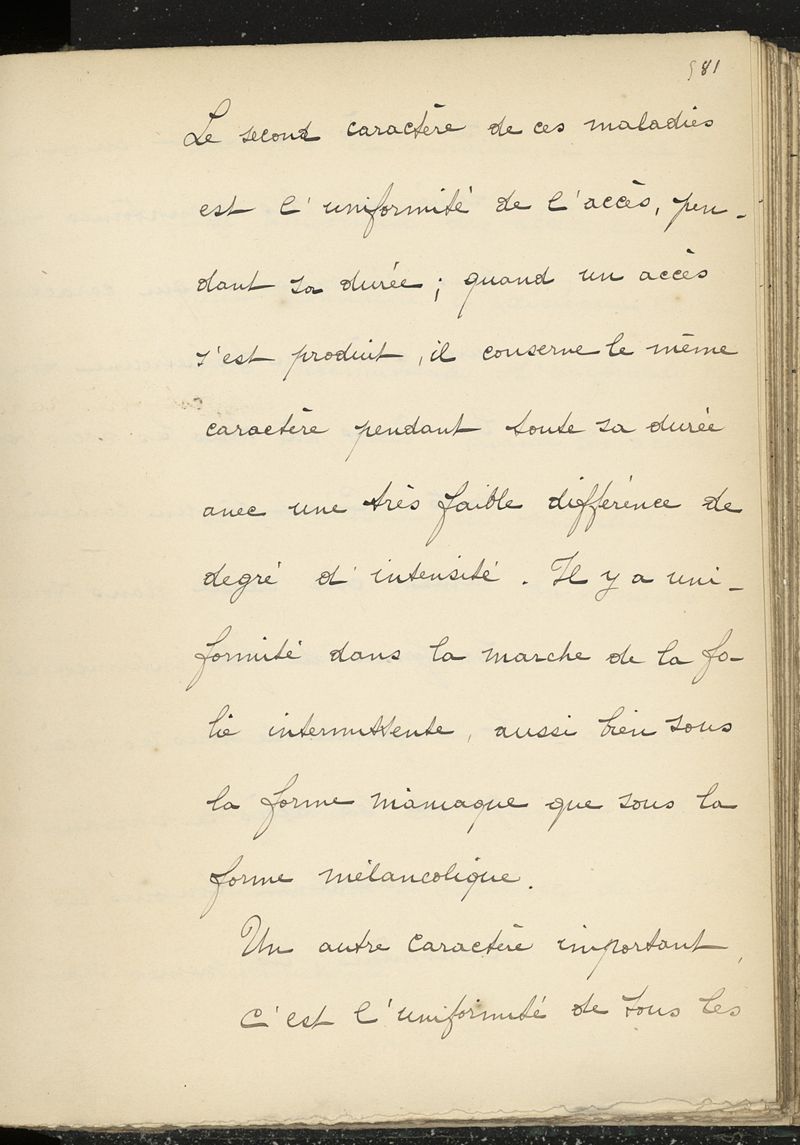 581
Le second caractère de ces maladies
est l'uniformité de l'accès, pen-
dant sa durée ; quand un accès
s'est produit, il conserve le même
caractère pendant toute sa durée
avec une très faible différence de
degré d'intensité. Il y a uni-
formité dans la marche de la fo-
lie intermittente, aussi bien sous
la forme maniaque que sous la
forme mélancolique.
Un autre caractère important,
c'est l'uniformité de tous les